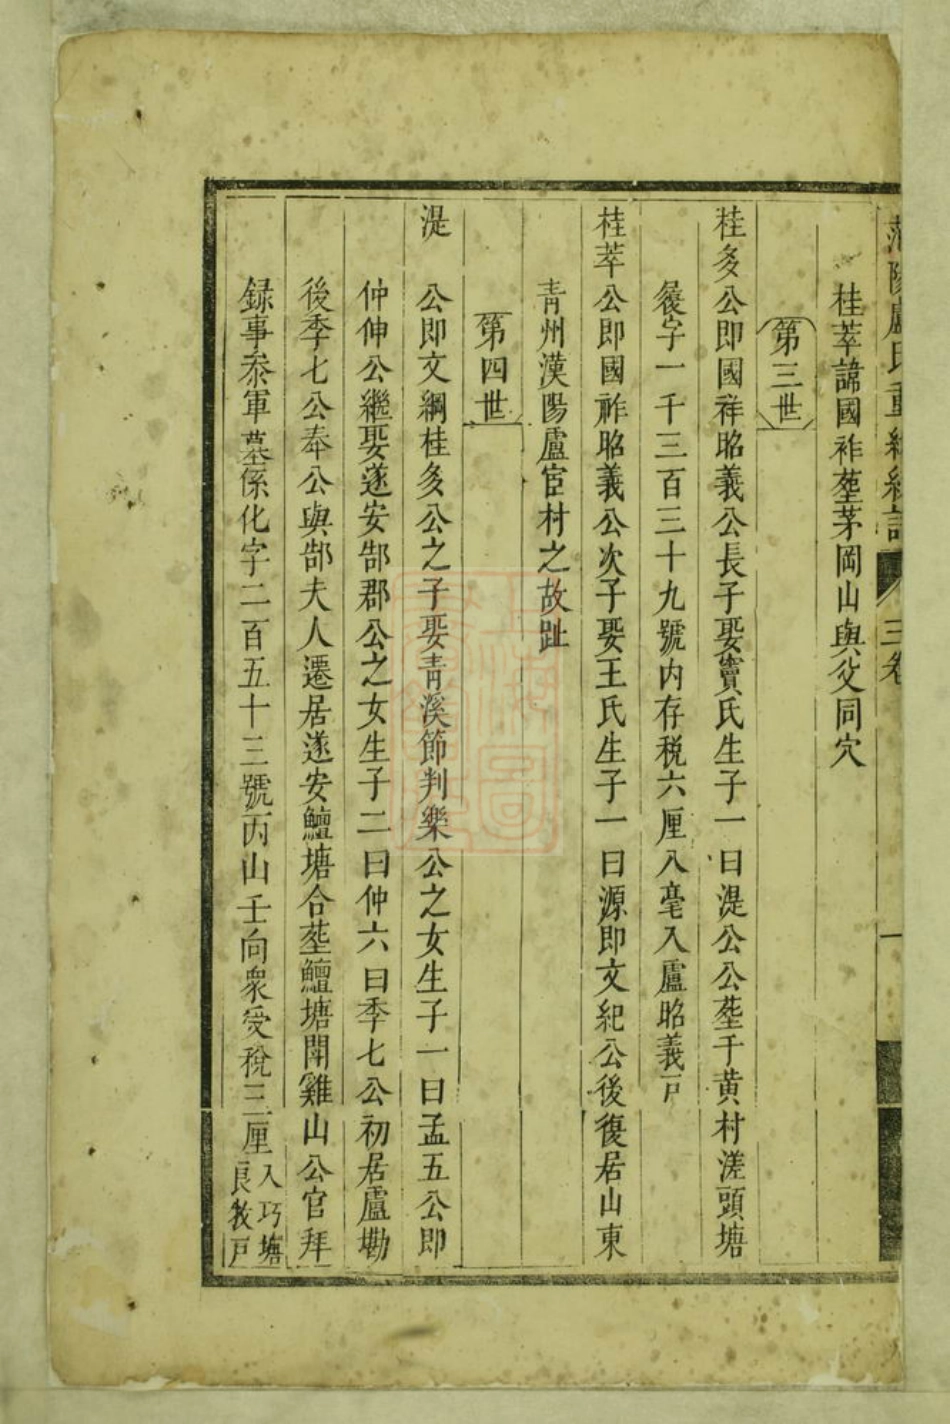 盧氏重 三卷
一
桂萃諱國祚塟茅岡山與父同穴
第三世
桂㚊公即國祥昭義公長子娶竇氏生子一曰湜公公塟于黄村溠頭塘
發字一千三百三十九號内存税六厘八毫入盧昭義戸
桂萃公即國祚昭義公次子娶王氏生子一曰源即文紀公後復居山東
青州漢陽盧宦村之故趾
第四世
湜 公即文綱桂㚊公之子娶青溪節判樂公之女生子一曰孟五公即
仲伸公繼娶遂安郜郡公之女生子二曰仲六曰季七公初居盧墈
後季七公奉公與郜夫人遷居遂安鱣塘合塟鱣塘鬥雞山公官拜
録事叅軍墓係化字二百五十三號丙山壬向衆受稅三厘入巧塘
良牧戸